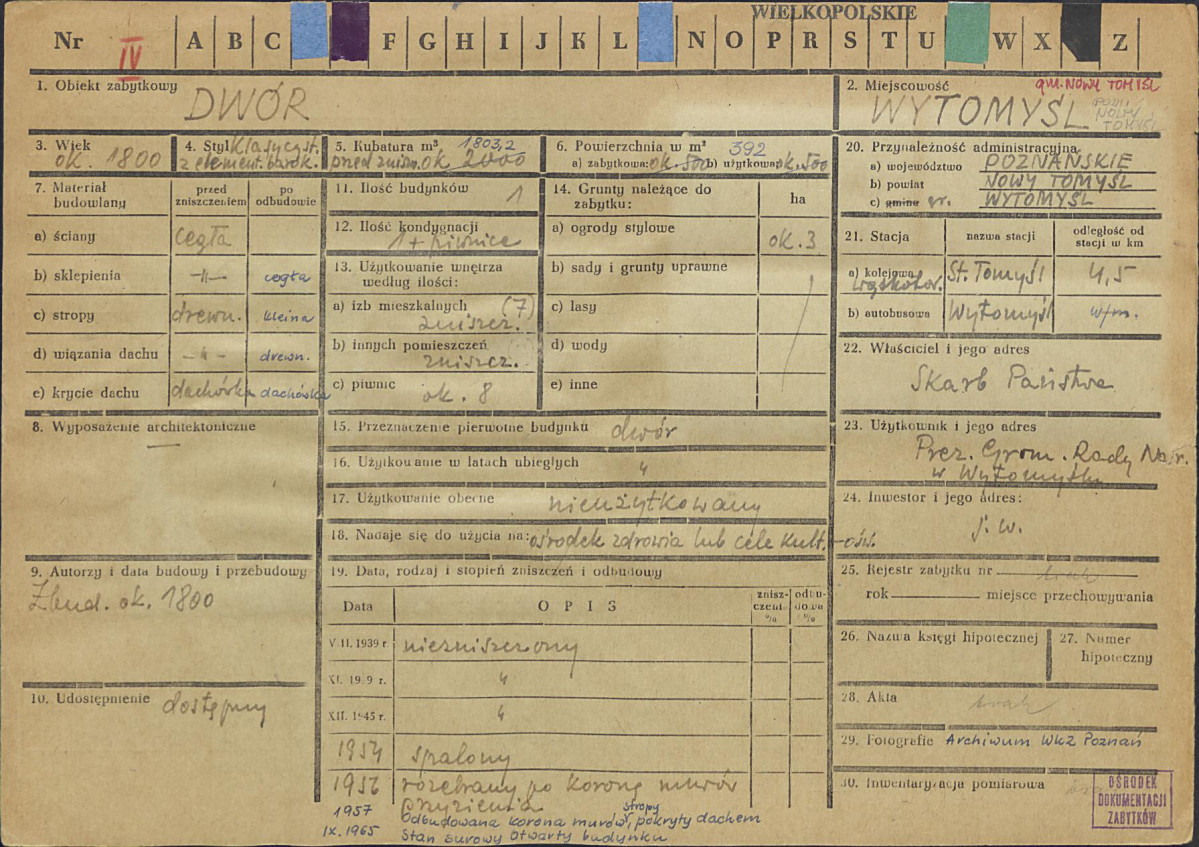 WIELKOPOLSKIE
Nr IV A B C F G H I J K L N O P R S T U W X Z
1. Obiekt zabytkowy
DWÓR
2. Miejscowość
gm. NOWY TOMYŚL
WYTOMYŚL
NOWY
TOMYŚL
3. Wiek
ok. 1800
4. Styl klasycyst.
z element. barok.
5. Kubatura m³ 1803,2
przed zniszcz. ok 2000
6. Powierzchnia w m² 392
a) zabytkowa: ok 500 b) użytkowa: ok. 500
20. Przynależność administracyjna
a) województwo POZNAŃSKIE
b) powiat NOWY TOMYŚL
c) gmina gr. WYTOMYŚL
7. Materiał budowlany
przed zniszczeniem
po odbudowie
a) ściany cegła
b) sklepienia -"- cegła
c) stropy drewn. kleina
d) wiązania dachu -"- drewn.
e) krycie dachu dachówka dachówka
11. Ilość budynków 1
12. Ilość kondygnacji
1 + piwnice
13. Użytkowanie wnętrza
według ilości:
a) izb mieszkalnych (7)
zniszcz.
b) innych pomieszczeń
zniszcz.
c) piwnic
ok. 8
14. Grunty należące do
zabytku: ha
a) ogrody stylowe ok. 3
b) sady i grunty uprawne
c) lasy
d) wody
e) inne
21. Stacja
nazwa stacji
odległość od
stacji w km
a) kolejowa St. Tomyśl 4,5
wąskotor.
b) autobusowa Wytomyśl w/m.
22. Właściciel i jego adres
Skarb Państwa
8. Wyposażenie architektoniczne
—
15. Przeznaczenie pierwotne budynku dwór
16. Użytkowanie w latach ubiegłych "
17. Użytkowanie obecne nieużytkowany
18. Nadaje się do użycia na: ośrodek zdrowia lub cele kult.-ośw.
23. Użytkownik i jego adres
Prez. Grom. Rady Nar.
w Wytomyślu
24. Inwestor i jego adres:
j. w.
9. Autorzy i data budowy i przebudowy
Zbud. ok. 1800
19. Data, rodzaj i stopień zniszczeń i odbudowy
Data
OPIS
znisz-
czenia
%
odbu-
dowa
%
VIII. 1939 r. niezniszczony
XI. 1939 r. "
XII. 1945 r. "
1954 spalony
1956 rozebrany po koronę murów
przyziemia
1957 Odbudowana korona murów, stropy, pokryty dachem
IX. 1965 Stan surowy otwarty budynku
10. Udostępnienie dostępny
25. Rejestr zabytku nr brak
rok miejsce przechowywania
26. Nazwa księgi hipotecznej
27. Numer
hipoteczny
28. Akta brak
29. Fotografie Archiwum WKZ Poznań
30. Inwentaryzacja pomiarowa
OŚRODEK
DOKUMENTACJI
ZABYTKÓW